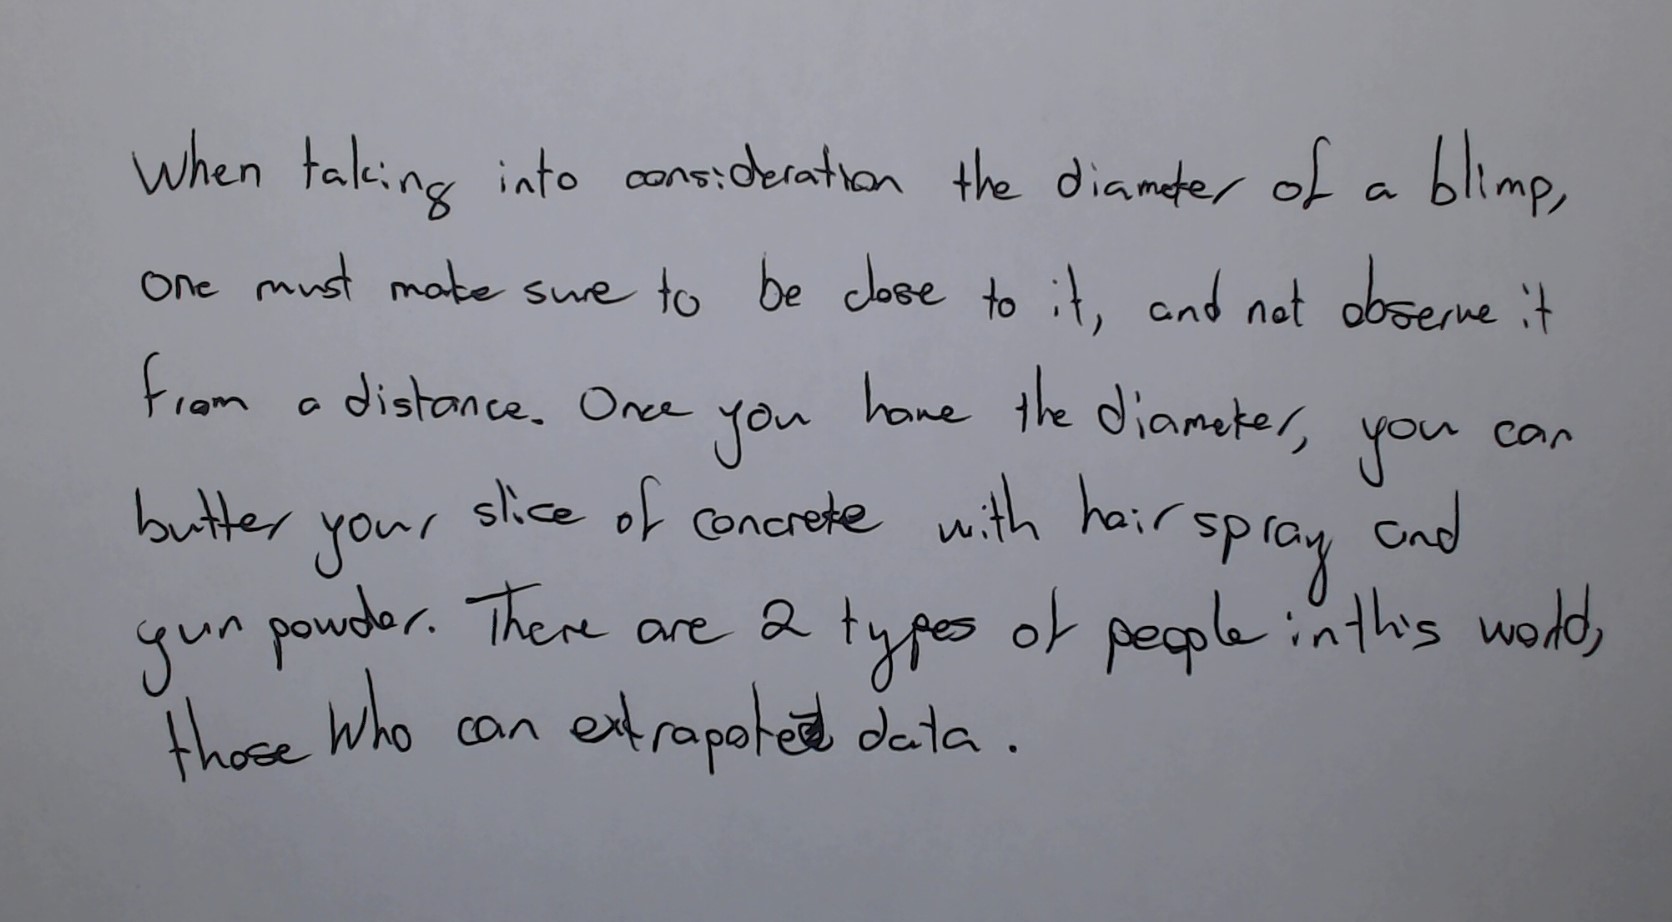 When taking into consideration the diameter of a blimp,
one must make sure to be close to it, and not observe it
from a distance. Once you have the diameter, you can
butter your slice of concrete with hair spray and
gun powder. There are 2 types of people in this world,
those who can extrapoted data.